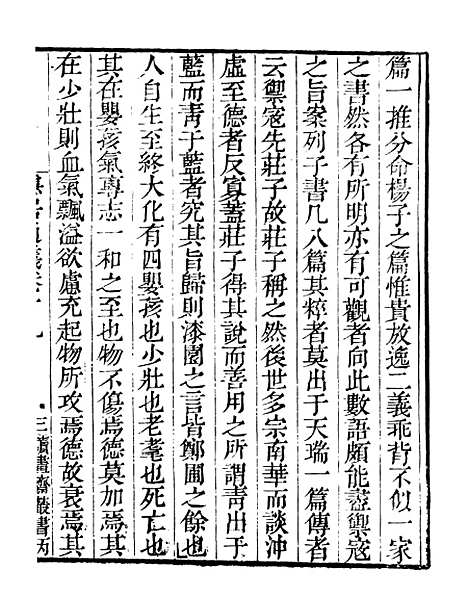 篇一推分命楊子之篇惟貴放逸二義乖背不似一家
之書然各有所明亦有可觀者向此數語頗能盡禦寇
之旨案列子書凡八篇其粹者莫出于天瑞一篇傳者
云禦寇先莊子故莊子稱之然後世多宗南華而談沖
虛至德者反寡蓋莊子得其說而善用之所謂青出于
藍而青于藍者究其旨歸則漆園之言皆鄭圃之餘也
人自生至終大化有四嬰孩也少壯也老耄也死亡也
其在嬰孩氣專志一和之至也物不傷焉德莫加焉其
在少壯則血氣飄溢欲慮充起物所攻焉德故衰焉其
三
讀畫齋叢書丙